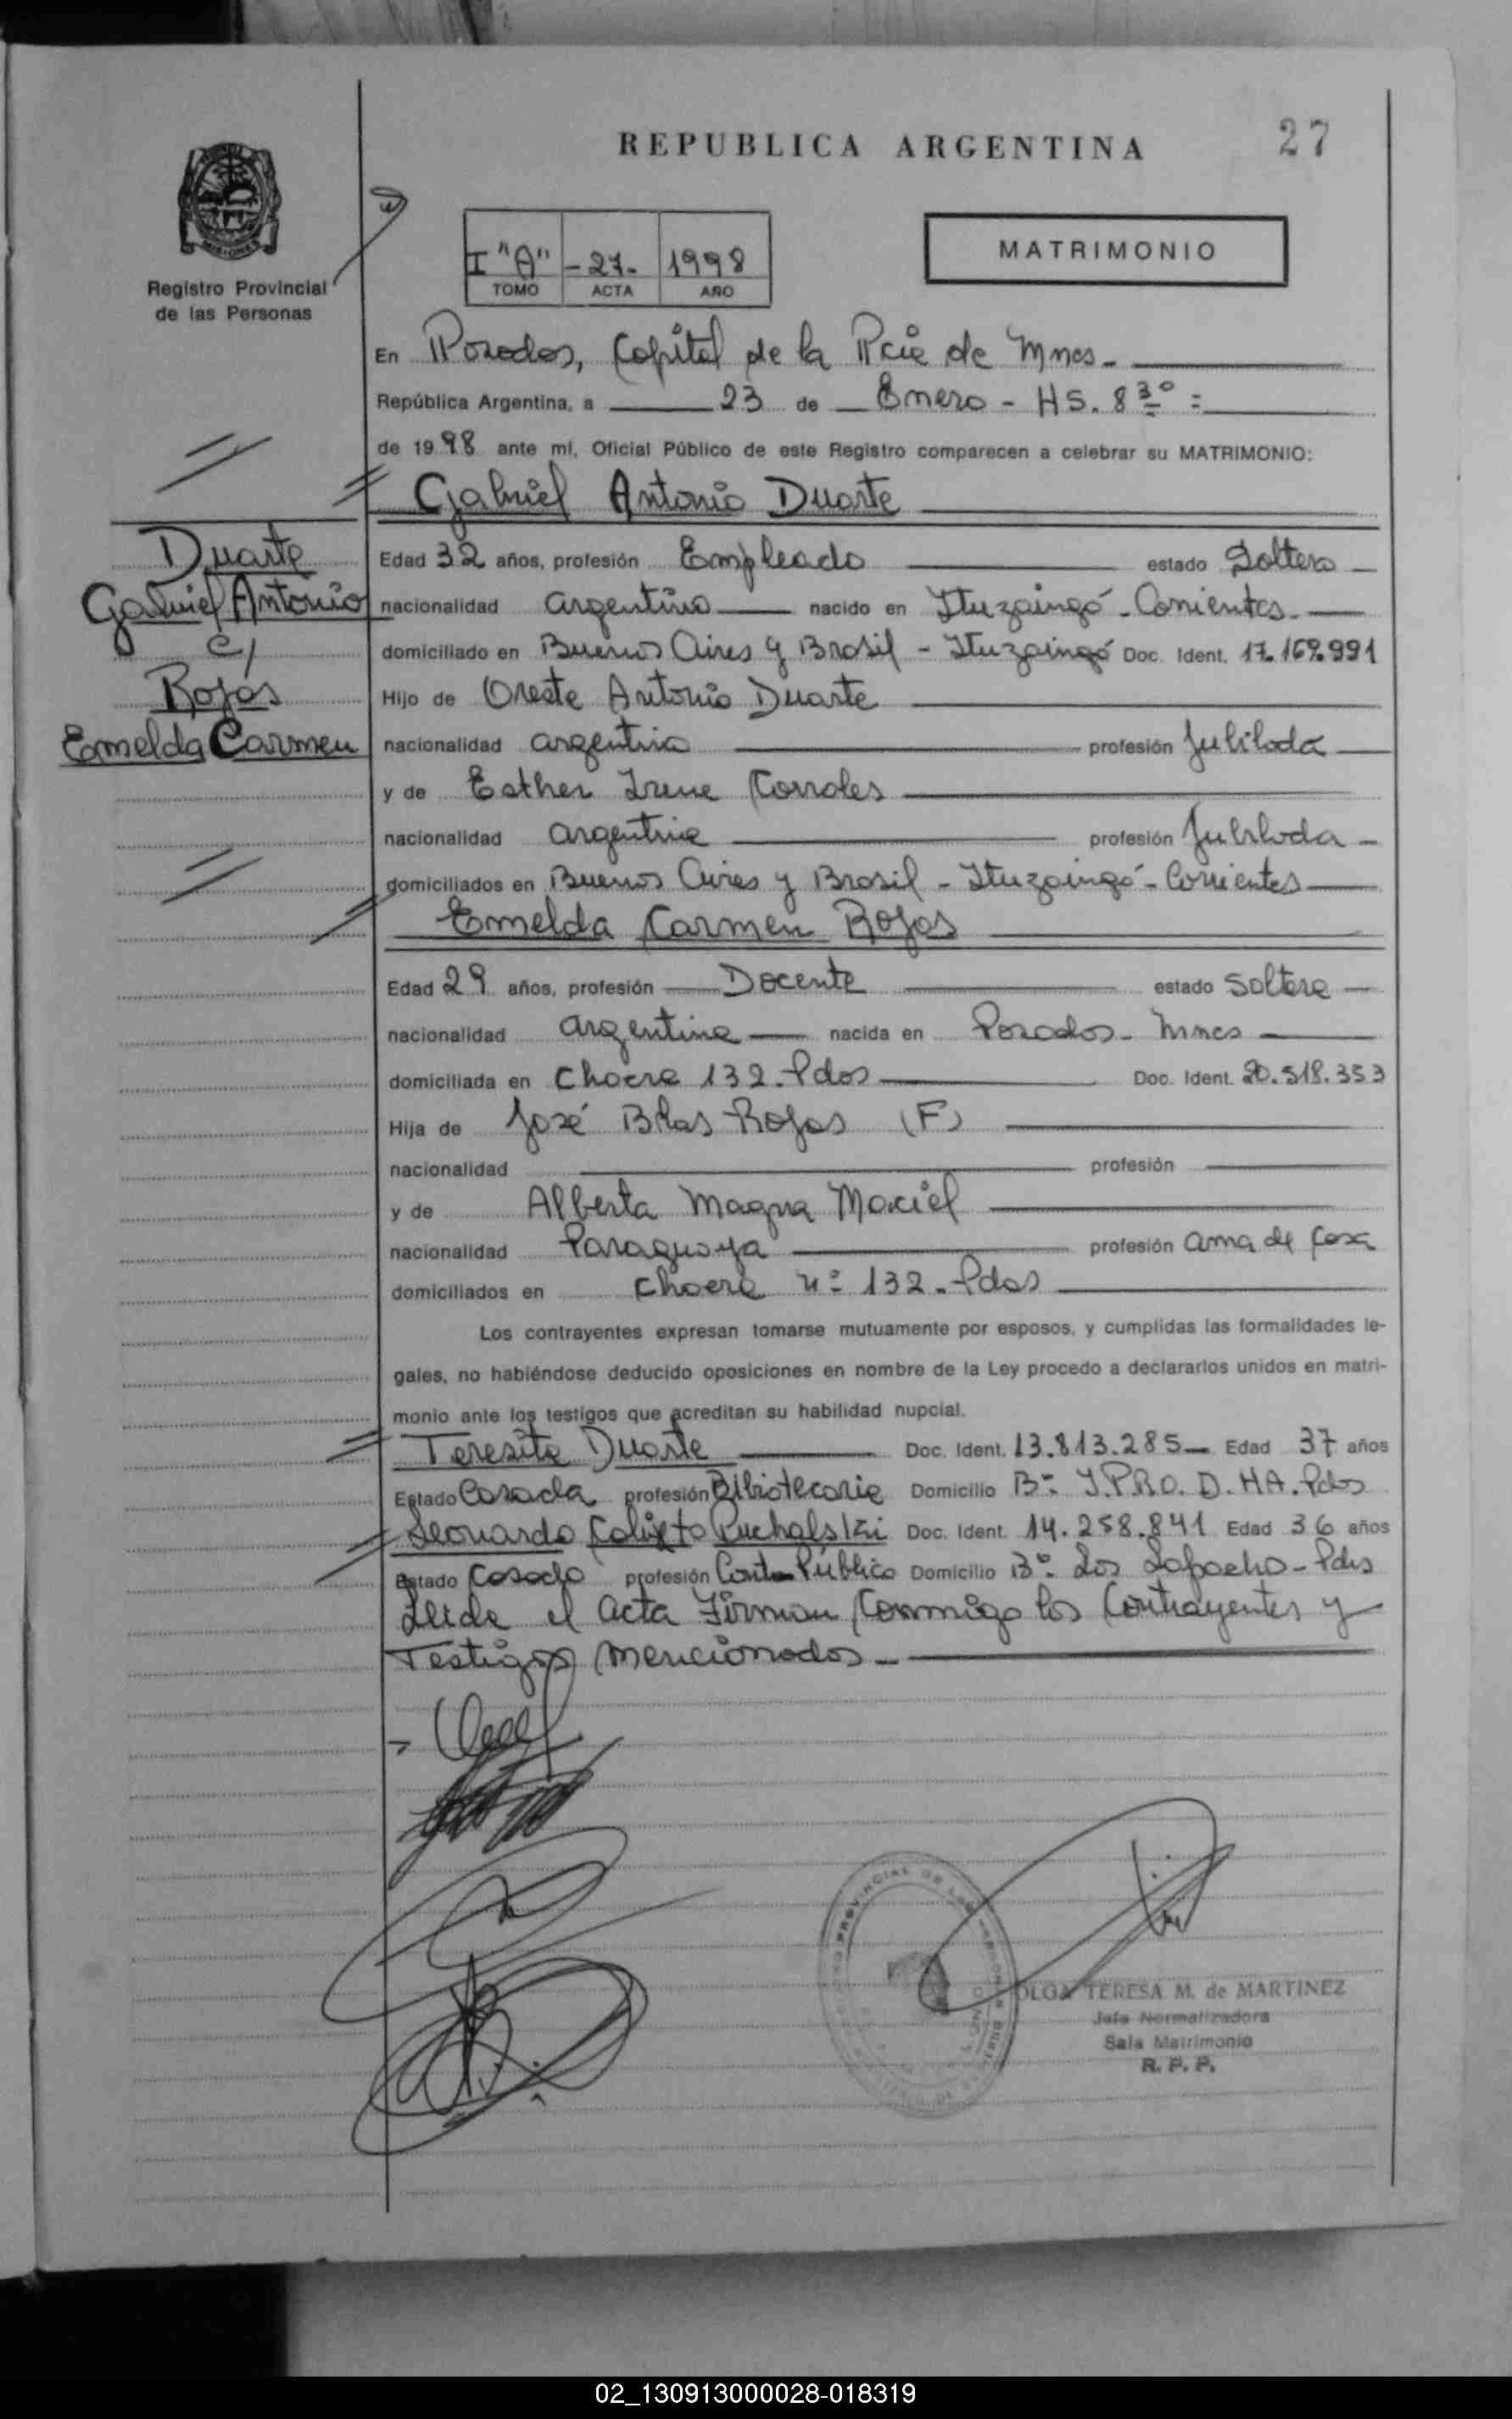 REPUBLICA ARGENTINA
27
MISIONES
Registro Provincial
de las Personas
I "A" -27- 1998
TOMO ACTA AÑO
MATRIMONIO
En Posadas, Capital de la Pcie de Mnes-
República Argentina, a 23 de Enero - HS. 8 30 =
de 1998 ante mí, Oficial Público de este Registro comparecen a celebrar su MATRIMONIO:
Gabriel Antonio Duarte
Duarte
Gabriel Antonio
c/
Rojas
Emelda Carmen
Edad 32 años, profesión Empleado estado Soltero
nacionalidad argentino nacido en Ituzaingó - Corrientes.
domiciliado en Buenos Aires y Brasil - Ituzaingó Doc. Ident. 17.169.991
Hijo de Oreste Antonio Duarte
nacionalidad argentina profesión Jubilada
y de Esther Irene Corrales
nacionalidad argentina profesión Jubilada
domiciliados en Buenos Aires y Brasil - Ituzaingó - Corrientes
Emelda Carmen Rojas
Edad 29 años, profesión Docente estado Soltera
nacionalidad argentina nacida en Posadas - Mnes
domiciliada en Chacra 132 - Pdas Doc. Ident. 20.518.353
Hija de José Blas Rojas (F)
nacionalidad profesión
y de Alberta Magna Maciel
nacionalidad Paraguaya profesión ama de casa
domiciliados en Chacra nº 132 - Pdas
Los contrayentes expresan tomarse mutuamente por esposos, y cumplidas las formalidades le-
gales, no habiéndose deducido oposiciones en nombre de la Ley procedo a declararlos unidos en matri-
monio ante los testigos que acreditan su habilidad nupcial.
Teresita Duarte Doc. Ident. 13.813.285 Edad 37 años
Estado Casada profesión Bibliotecaria Domicilio Bº I.PRO.D.HA. Pdas
Leonardo Calixto Puchalski Doc. Ident. 14.258.841 Edad 36 años
Estado Casado profesión Cont. Público Domicilio Bº Los Lapacho - Pdas
Leida el acta Firman Conmigo los Contrayentes y
Testigos mencionados -
OLGA TERESA M. de MARTINEZ
Jefa Normalizadora
Sala Matrimonio
R. P. P.
02_130913000028-018319